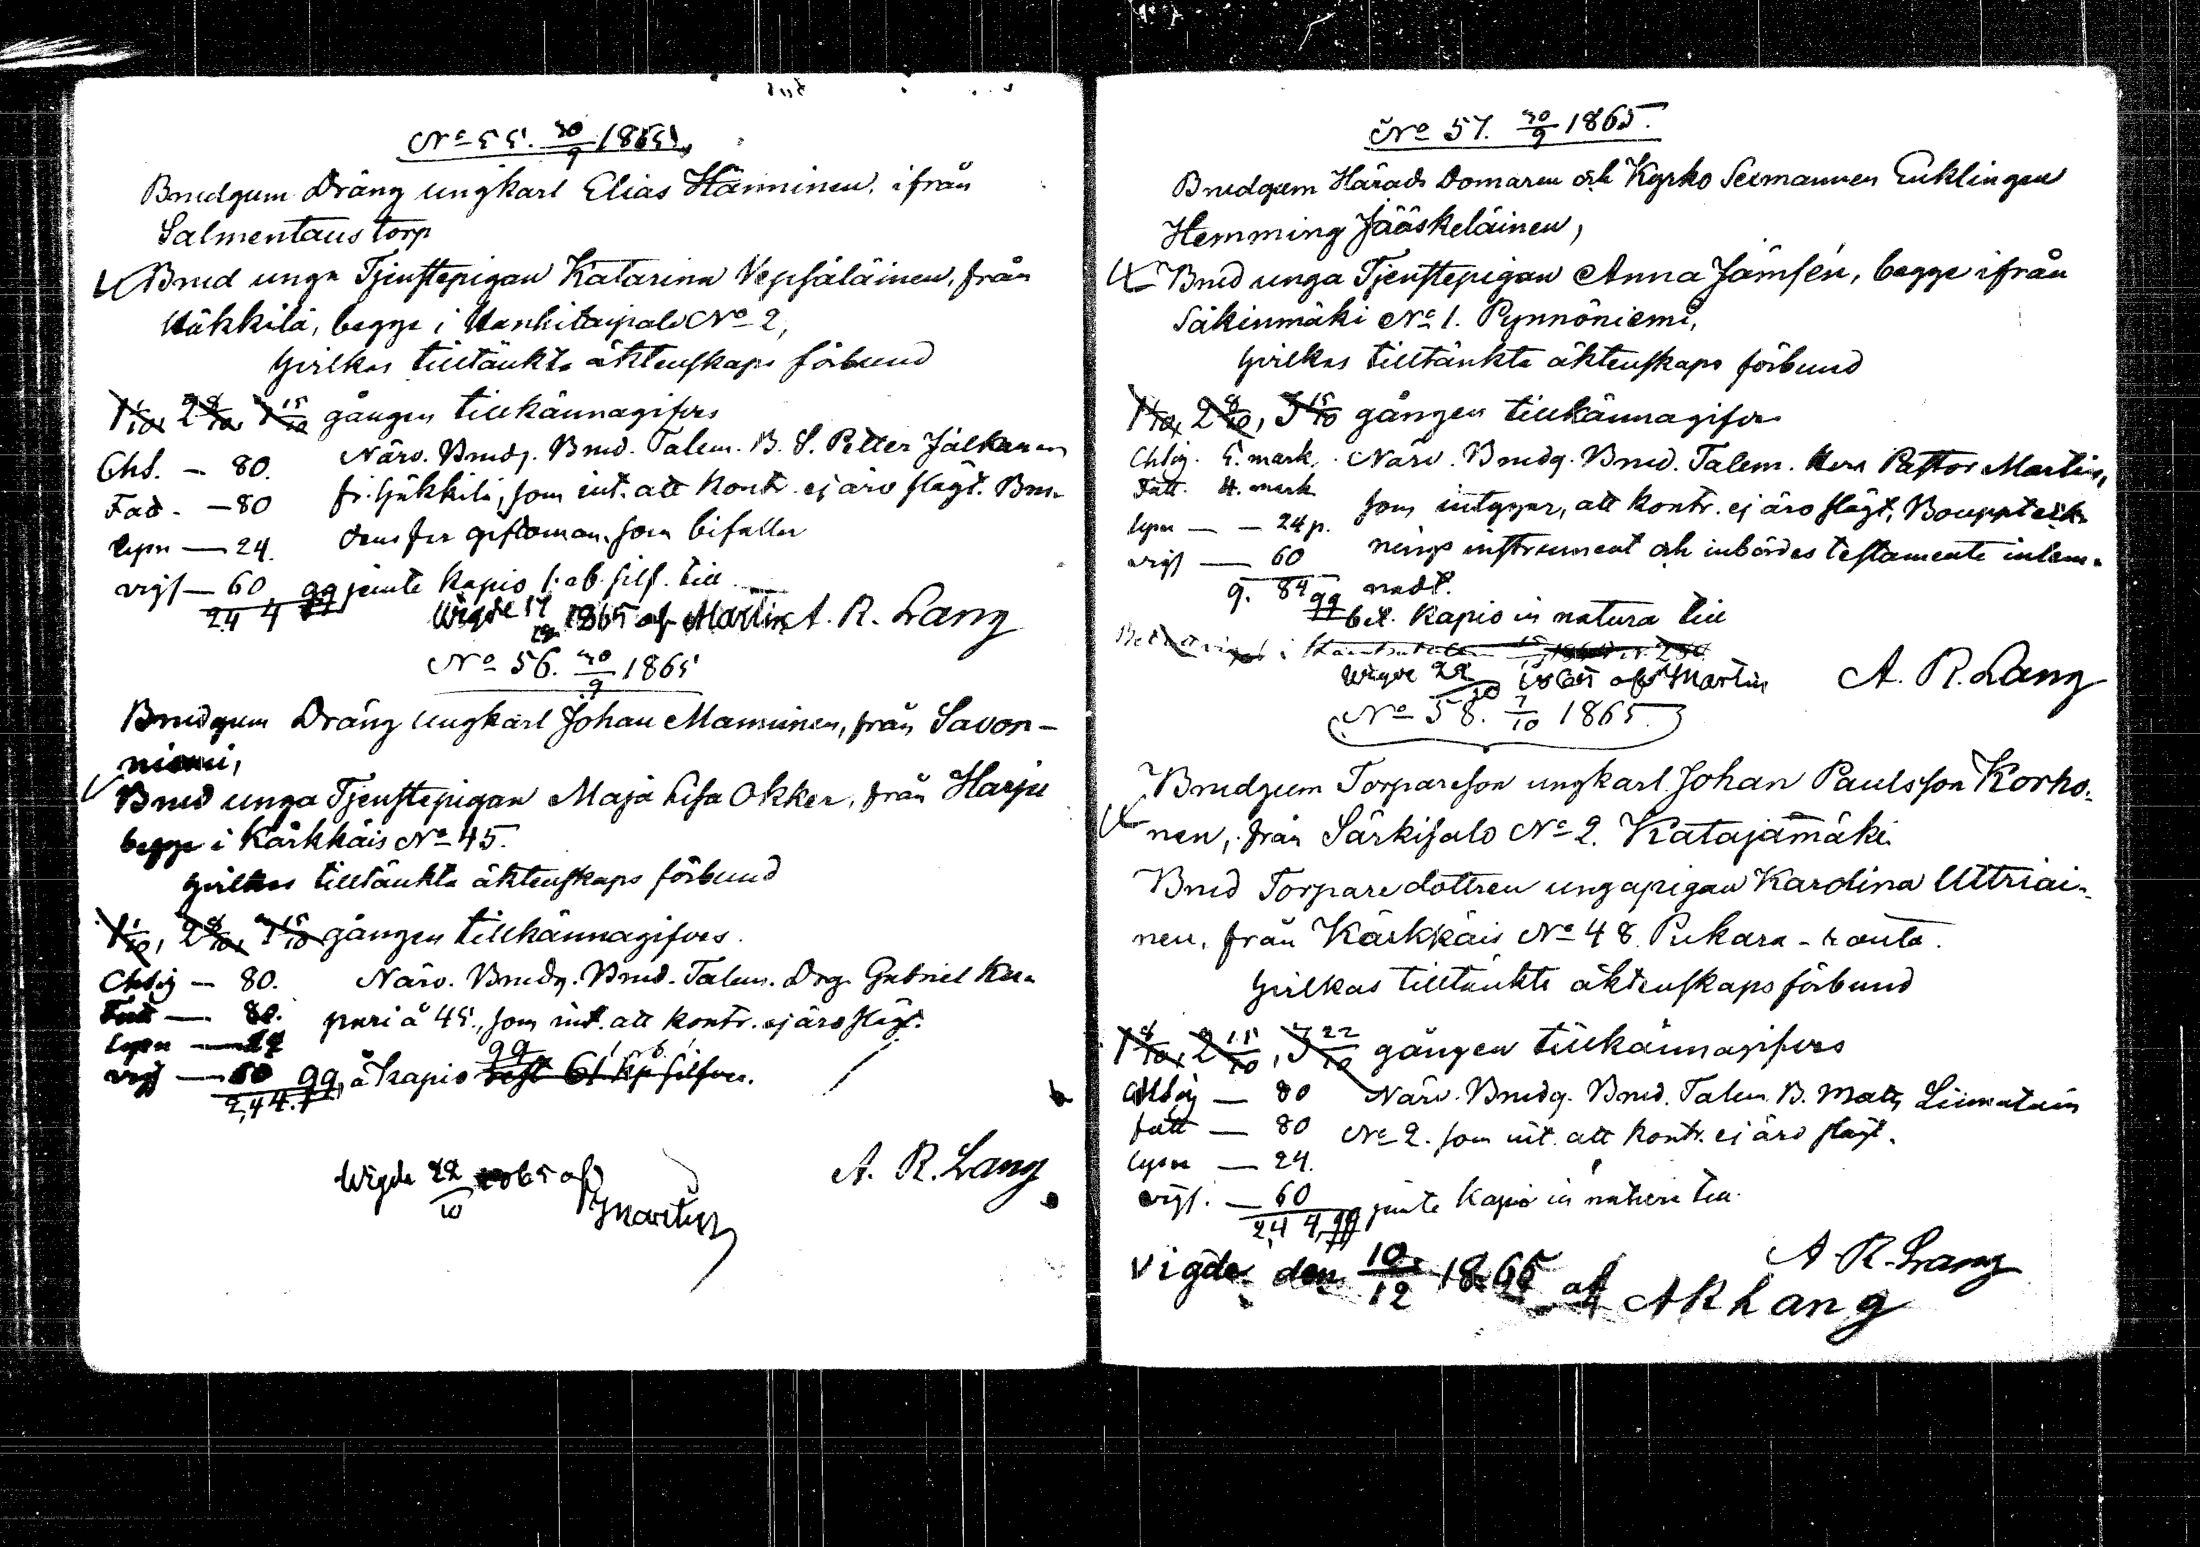 No 55. 30/9 1865.
Brudgum Dräng ungkarl Elias Hänninen, ifrån
Salmentaus torp
Brud unga Tjenstepigan Katarina Vepsäläinen, från
Häkkilä, begge i Hankitaipale No 2,
hvilkas tilltänkta äktenskaps förbund
1 1/10, 2 8/10, 3 15/10 gången tillkännagifves
Chs. - 80. Närv. Brudg. Brud. Talem. B. S. Petter Jälkanen
Fad. - 80 fr. Häkkilä, som int. att kontr. ej äro slägt. Bru-
lysn - 24. dens far giftoman, som bifaller
vigs - 60 gg jemte kapio s. ab. silf. till
2.44
Wigde 17/10 1865 af Martin A. R. Lang
No 56. 30/9 1865
Brudgum Dräng Ungkarl Johan Manninen, från Savon-
niemi,
Brud unga Tjenstepigan Maja Lisa Okker, från Harju
begge i Kärkkäis No 45.
hvilkas tilltänkta äktenskaps förbund
1 1/10, 2 8/10, 3 15/10 gången tillkännagifves.
Chsig - 80. Närv. Brudg. Brud. Talem. Drg. Gabriel Ku-
Fatt - 80. puri å 45., som int. att kontr. ej äro slägt.
lysn - 24
vigs - 60 gg å kapio
2,44.
Wigda 22/10 1865 af Martin
A. R. Lang
No 57. 30/9 1865.
Brudgum Härads Domaren och Kyrko Sexmannen Enklingen
Hemming Jääskeläinen,
Brud unga Tjenstepigan Anna Jämsén, begge ifrån
Säkinmäki No 1. Pynnöniemi,
hvilkas tilltänkta äktenskaps förbund
1 1/10, 2 8/10, 3 15/10 gången tillkännagifves
Chsig. 5. mark. Närv. Brudg. Brud. Talem. Herr Pastor Martin,
Fatt. 4. mark som intygar, att kontr. ej äro slägt, Bouppteck-
lysn - 24 p. nings instrument och inbördes testamente inlem-
vigs - 60 nadt.
9. 84 gg bet. kapio in natura till
Wigde 22/10 1865 af Martin A. R. Lang
No 58. 7/10 1865.
Brudgum Torpareson ungkarl Johan Paulsson Korho-
nen, från Särkisalo No 2. Katajamäki
Brud Torpare dottren unga pigan Karolina Uttriai-
nen, från Kärkkäis No 48 Pukara-
hvilkas tilltänkta äktenskaps förbund
1 8/10, 2 15/10, 3 22/10 gången tillkännagifves
Chsig - 80 Närv. Brudg. Brud. Talem. B. Mats Liimatain
fatt - 80 No 2. som int. att kontr. ej äro slägt.
lysn - 24.
vigs. - 60 gg jemte kapio in natura till
2,44
A. R. Lang
Vigde den 10/12 1865 af A R Lang